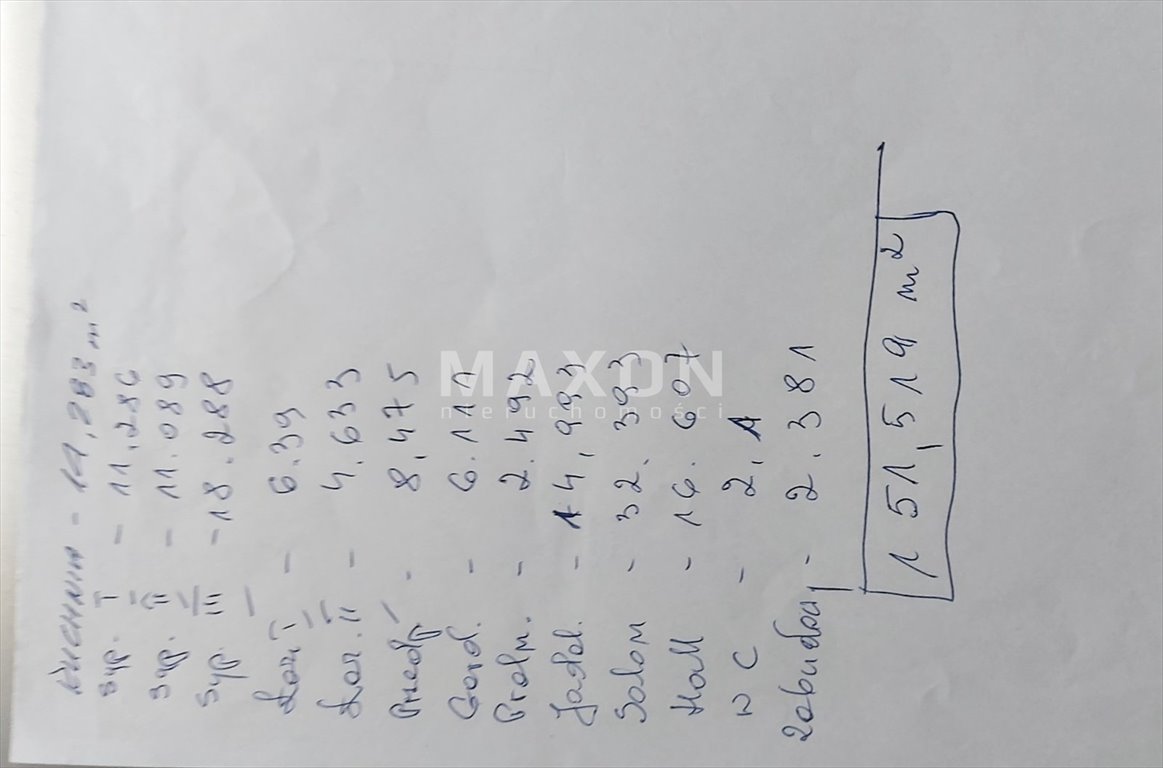 KUCHNIA - 14,283 m²
Syp. I - 11,286
Syp. II - 11.089
Syp. III - 18.288
Łaz I - 6.39
Łaz. II - 4,633
Przedp - 8,475
Gard. - 6.111
Pralm. - 2.492
Jadal. - 14,993
Salon - 32.393
Hall - 16.607
WC - 2,1
Zabudowy - 2.381
151,519 m²
MAXON
nieruchomości